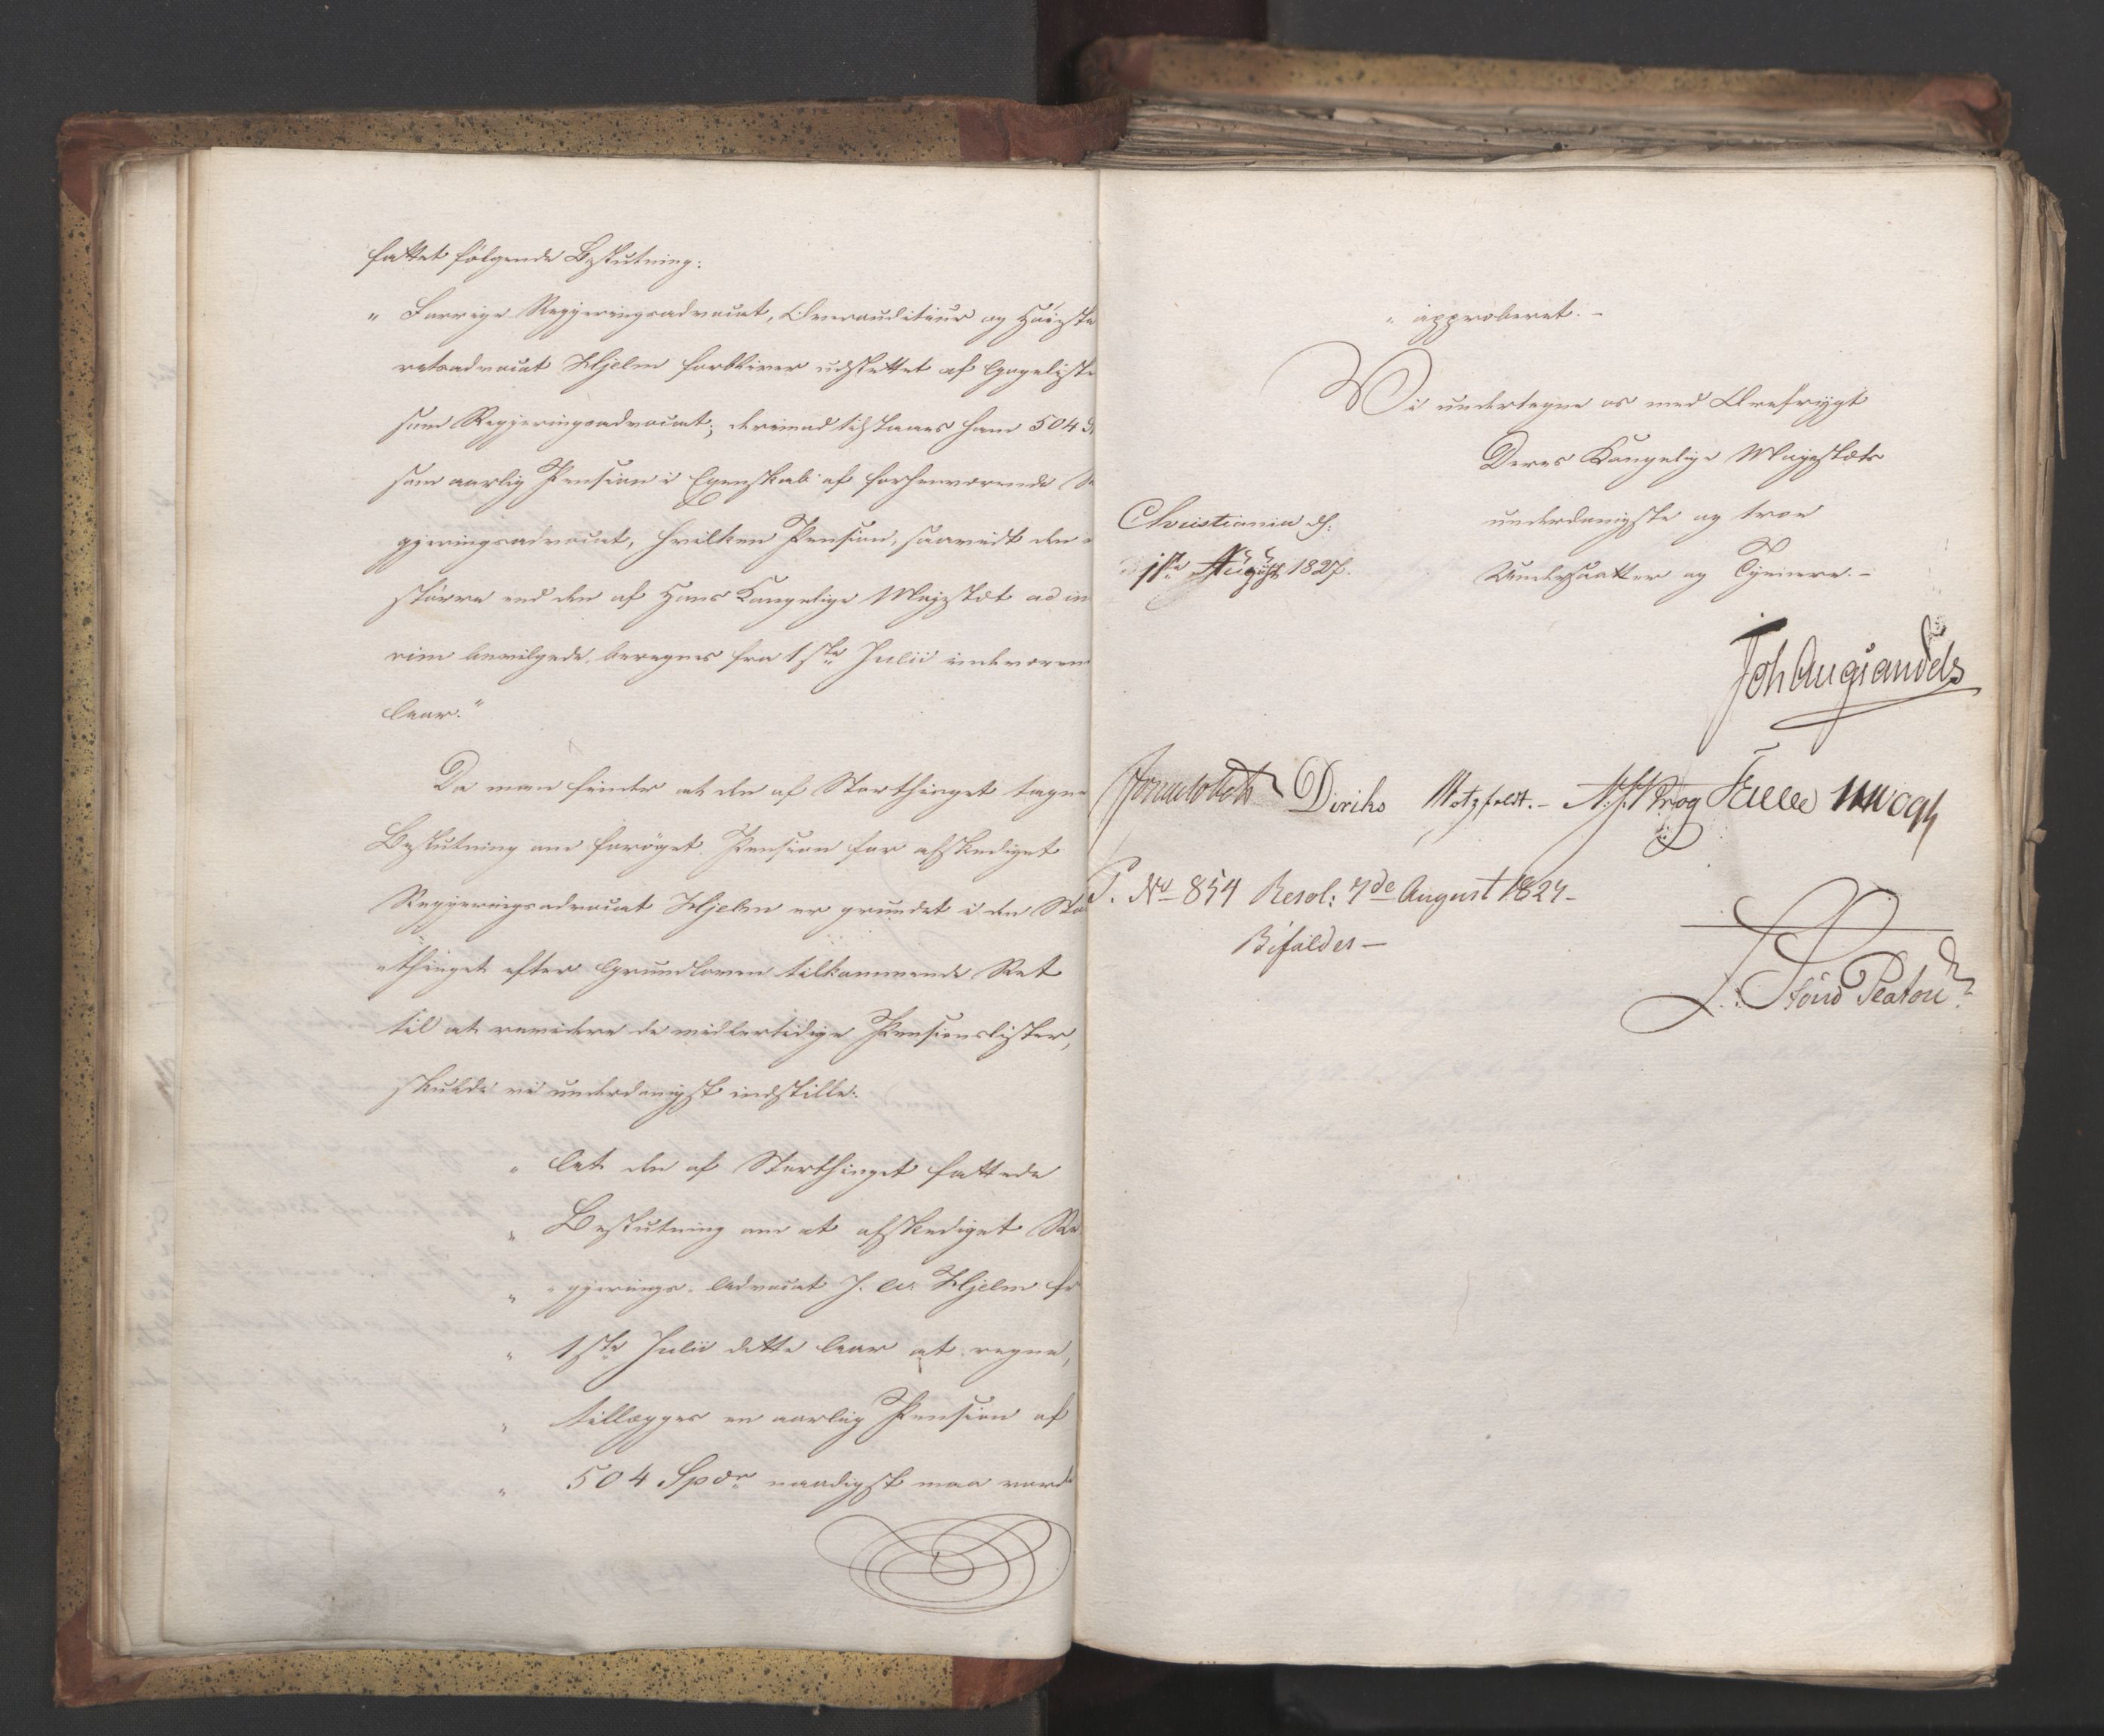 fattet følgende Beslutning:
" Forrige Regjeringsadvocat, Overauditeur og Høieste
retsadvocat Hjelm forbliver udslettet af Gageliste
som Regjeringsadvocat; derimod tilstaaes ham 504
som aarlig Pension i Egenskab af forhenværende Re
gjeringsadvocat, hvilken Pension, saavidt den
større end den af Hans Kongelige Majestæt ad in
rim bevilgede, beregnes fra 1ste Julii indeværen
Aar."
Da man finder at den af Storthinget tagne
Beslutning om forøget Pension for afskediget
Regjeringsadvocat Hjelm er grundet i den Stor
"thinget efter Grundloven tilkommende Ret
til at revidere de midlertidige Pensionslister,
skulde vi underdanigst indstille:
" At den af Storthinget fattede
" Beslutning om at afskediget Re
" "gjerings-Advocat J. A. Hjelm fr
" 1ste Julii dette Aar at regne,
" tillægges en aarlig Pension af
" 504 Spdr naadigst maa vorde
" approberet. –
Vi undertegne os med Ærefrygt
Deres Kongelige Majestæts
underdanigste og troe
Undersaatter og Tjenere. –
Christiania d:
1ste August 1827.
Joh Aug Sandels
Jonas Collett Diriks Motzfeldt. – Krog Fasting
P. No 854 Resol: 7de August 1827 –
Bifaldes –